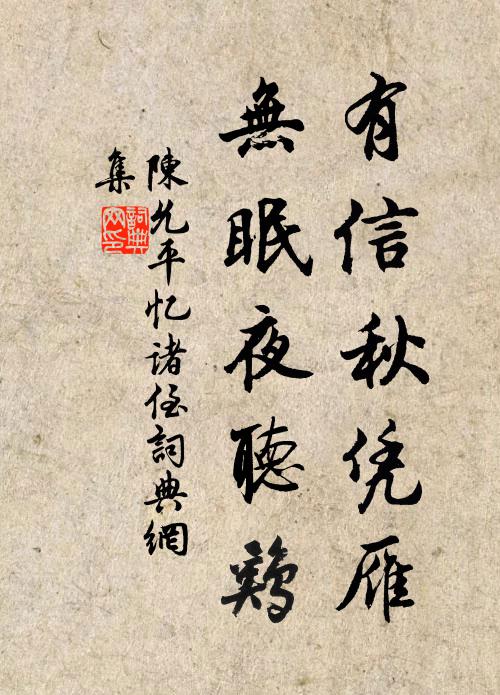 有信秋凭雁
無眠夜聽鷄
陳允平忆诸侄詞典網
集
詞典
网印